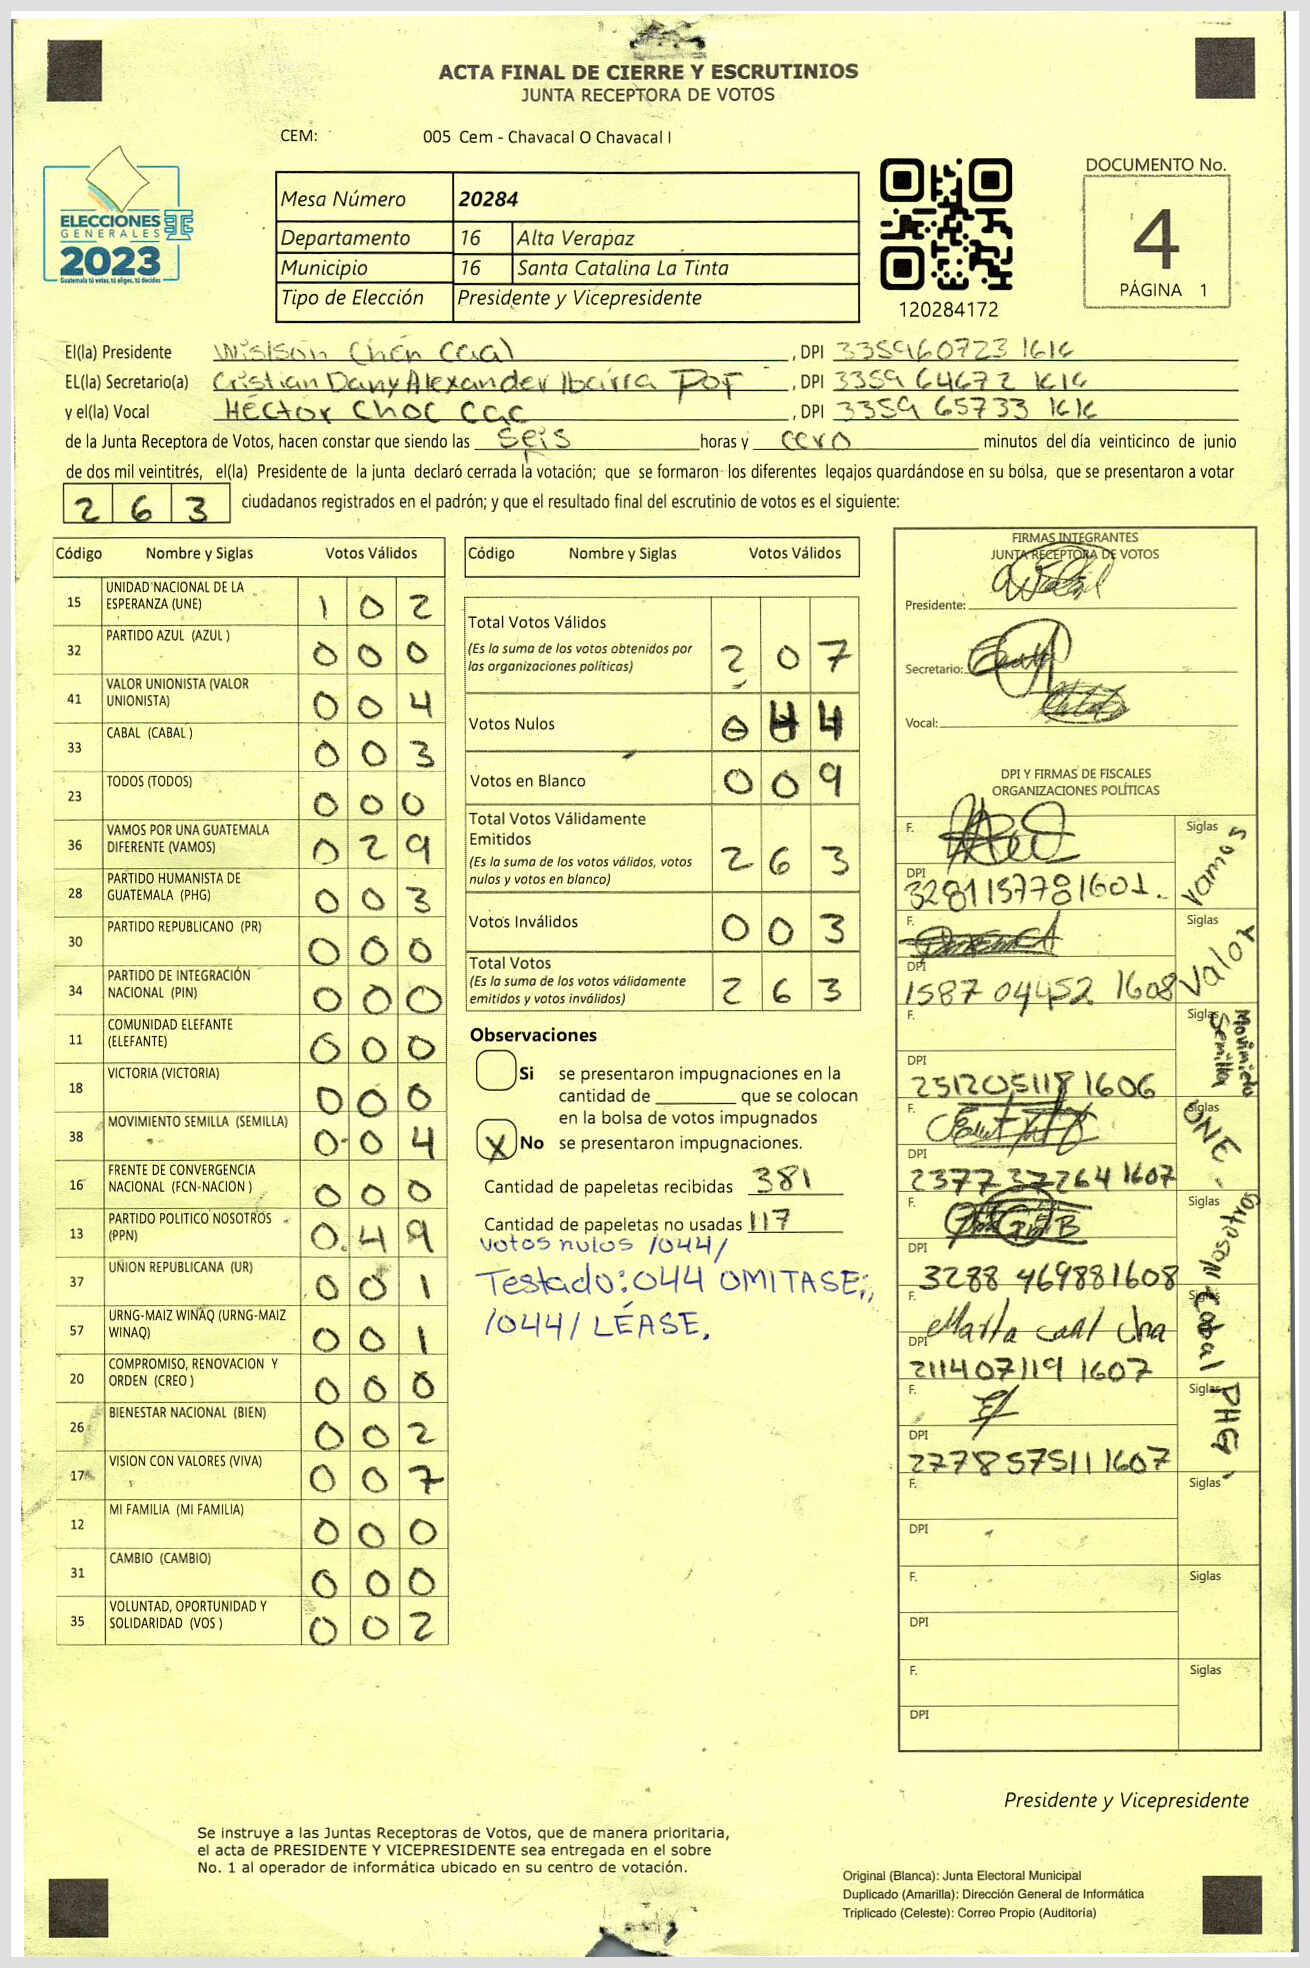 ACTA FINAL DE CIERRE Y ESCRUTINIOS
JUNTA RECEPTORA DE VOTOS
CEM: 005 Cem - Chavacal O Chavacal I
ELECCIONES
GENERALES
2023
Guatemala tú votas, tú eliges, tú decides
Mesa Número 20284
Departamento 16 Alta Verapaz
Municipio 16 Santa Catalina La Tinta
Tipo de Elección Presidente y Vicepresidente
120284172
DOCUMENTO No.
4
PÁGINA 1
El(la) Presidente Wislson Chen Caal, DPI 335960723 1616
EL(la) Secretario(a) Cristian Dany Alexander Ibarra Pop, DPI 3359 64672 1616
y el(la) Vocal Héctor Choc Cac, DPI 3359 65733 1616
de la Junta Receptora de Votos, hacen constar que siendo las seis horas y cero minutos del día veinticinco de junio
de dos mil veintitrés, el(la) Presidente de la junta declaró cerrada la votación; que se formaron los diferentes legajos quardándose en su bolsa, que se presentaron a votar
263 ciudadanos registrados en el padrón; y que el resultado final del escrutinio de votos es el siguiente:
Código Nombre y Siglas Votos Válidos
15 UNIDAD NACIONAL DE LA ESPERANZA (UNE) 1 0 2
32 PARTIDO AZUL (AZUL ) 0 0 0
41 VALOR UNIONISTA (VALOR UNIONISTA) 0 0 4
33 CABAL (CABAL ) 0 0 3
23 TODOS (TODOS) 0 0 0
36 VAMOS POR UNA GUATEMALA DIFERENTE (VAMOS) 0 2 9
28 PARTIDO HUMANISTA DE GUATEMALA (PHG) 0 0 3
30 PARTIDO REPUBLICANO (PR) 0 0 0
34 PARTIDO DE INTEGRACIÓN NACIONAL (PIN) 0 0 0
11 COMUNIDAD ELEFANTE (ELEFANTE) 0 0 0
18 VICTORIA (VICTORIA) 0 0 0
38 MOVIMIENTO SEMILLA (SEMILLA) 0 0 4
16 FRENTE DE CONVERGENCIA NACIONAL (FCN-NACION ) 0 0 0
13 PARTIDO POLITICO NOSOTROS (PPN) 0 4 9
37 UNION REPUBLICANA (UR) 0 0 1
57 URNG-MAIZ WINAQ (URNG-MAIZ WINAQ) 0 0 1
20 COMPROMISO, RENOVACION Y ORDEN (CREO ) 0 0 0
26 BIENESTAR NACIONAL (BIEN) 0 0 2
17 VISION CON VALORES (VIVA) 0 0 7
12 MI FAMILIA (MI FAMILIA) 0 0 0
31 CAMBIO (CAMBIO) 0 0 0
35 VOLUNTAD, OPORTUNIDAD Y SOLIDARIDAD (VOS ) 0 0 2
Código Nombre y Siglas Votos Válidos
Total Votos Válidos
(Es la suma de los votos obtenidos por
las organizaciones políticas) 2 0 7
Votos Nulos 0 4 4
Votos en Blanco 0 0 9
Total Votos Válidamente
Emitidos
(Es la suma de los votos válidos, votos
nulos y votos en blanco) 2 6 3
Votos Inválidos 0 0 3
Total Votos
(Es la suma de los votos válidamente
emitidos y votos inválidos) 2 6 3
Observaciones
Si se presentaron impugnaciones en la
cantidad de ________ que se colocan
en la bolsa de votos impugnados
X No se presentaron impugnaciones.
Cantidad de papeletas recibidas 381
Cantidad de papeletas no usadas 117
votos nulos /044/
Testado: 044 OMITASE;,
/044/ LÉASE.
FIRMAS INTEGRANTES
JUNTA RECEPTORA DE VOTOS
Presidente:
Secretario:
Vocal:
DPI Y FIRMAS DE FISCALES
ORGANIZACIONES POLÍTICAS
F. Siglas Vamos
DPI 3281157781601.
F. Siglas Valor
DPI 1587 04452 1608
F. Siglas Movimieto Semilla
DPI 251205118 1606
F. Siglas UNE.
DPI 2377 37264 1607
F. Siglas Nosotros
DPI 3288 469881608
F. Marta caal cha Siglas Cabal
DPI 211407119 1607
F. Siglas PHG.
DPI 277857511 1607
F. Siglas
DPI
F. Siglas
DPI
F. Siglas
DPI
Presidente y Vicepresidente
Se instruye a las Juntas Receptoras de Votos, que de manera prioritaria,
el acta de PRESIDENTE Y VICEPRESIDENTE sea entregada en el sobre
No. 1 al operador de informática ubicado en su centro de votación.
Original (Blanca): Junta Electoral Municipal
Duplicado (Amarilla): Dirección General de Informática
Triplicado (Celeste): Correo Propio (Auditoría)